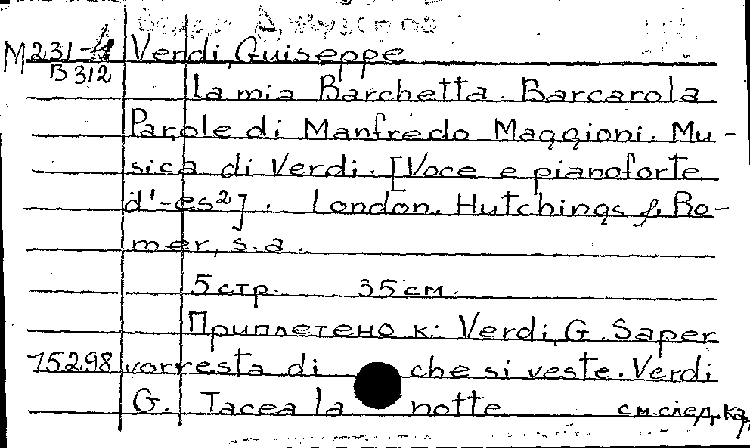 Верди Джузеппе
M231-4 Verdi, Guiseppe
B312
La mia Barchetta. Barcarola
Parole di Manfredo Maggioni. Mu-
sica di Verdi. [Voce e pianoforte
d'-es²]. London. Hutchings & Ro-
mer, s.a.
5 стр. 35 см.
Приплетено к: Verdi, G. Saper
15298 vorresta di che si veste. Verdi
G. Tacea la notte см. след. ка